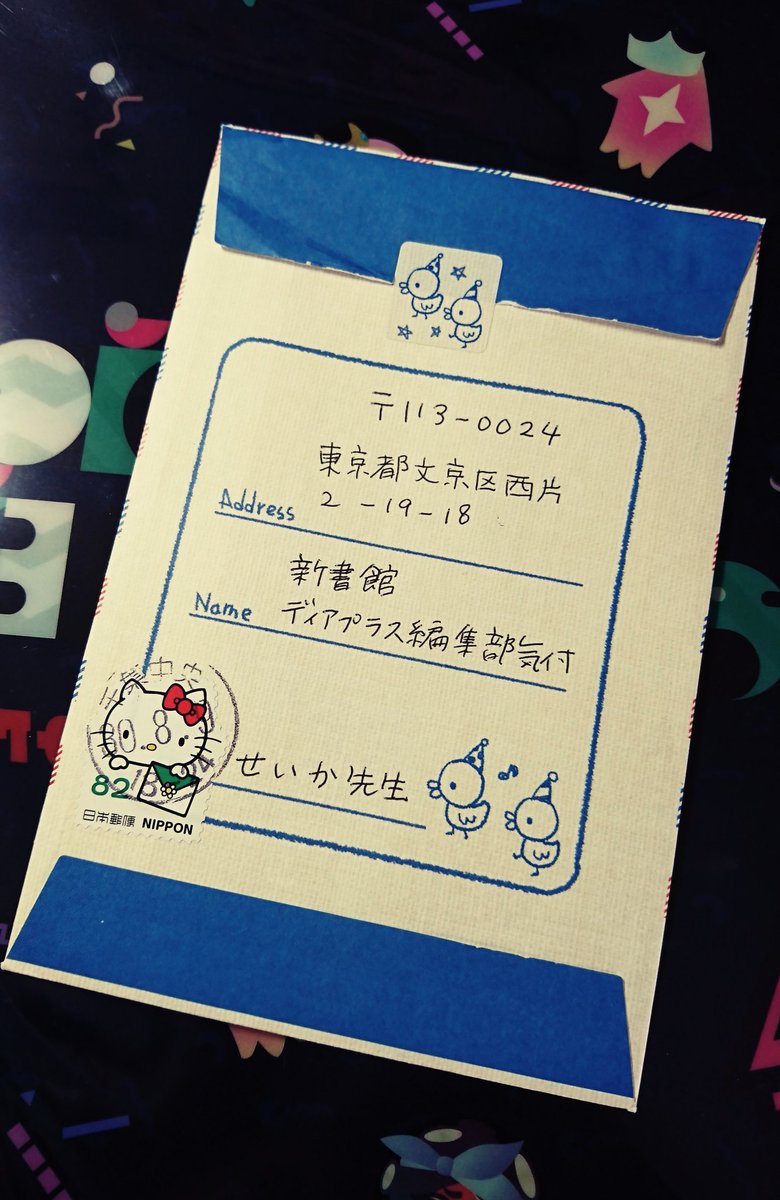 〒113-0024
東京都文京区西片
Address 2-19-18
新書館
Name ディアプラス編集部気付
せいか先生
82
日本郵便 NIPPON